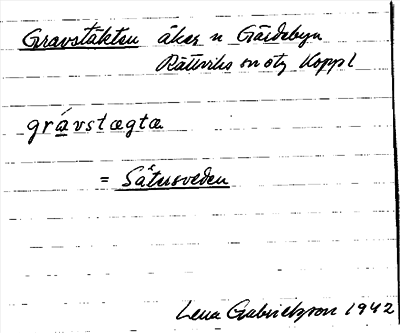 Gravstäkten åker n Gärdebyn
Rättviks sn östg Koppl
grávstægtæ
= Såtusveden
Lena Gabrielsson 1942